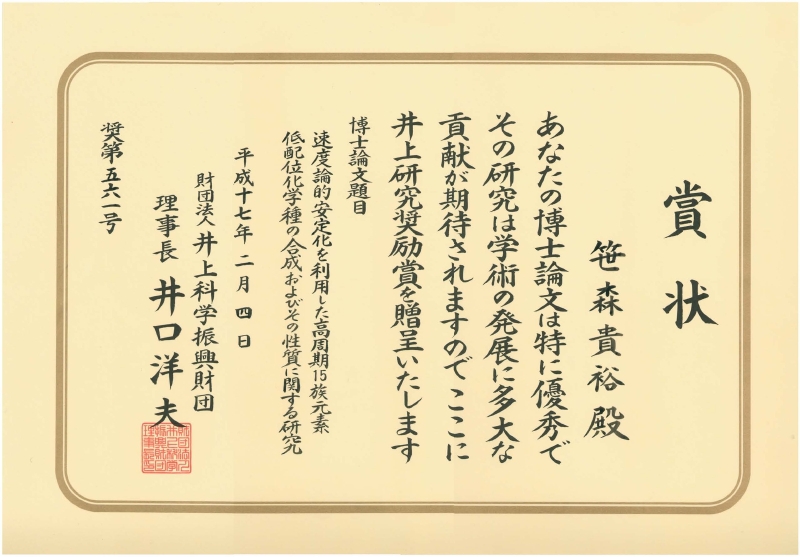 賞状
笹森貴裕殿
あなたの博士論文は特に優秀で
その研究は学術の発展に多大な
貢献が期待されますのでここに
井上研究奨励賞を贈呈いたします
博士論文題目
速度論的安定化を利用した高周期15族元素
低配位化学種の合成およびその性質に関する研究
平成十七年二月四日
財団法人井上科学振興財団
理事長 井口洋夫
奨第五六一号